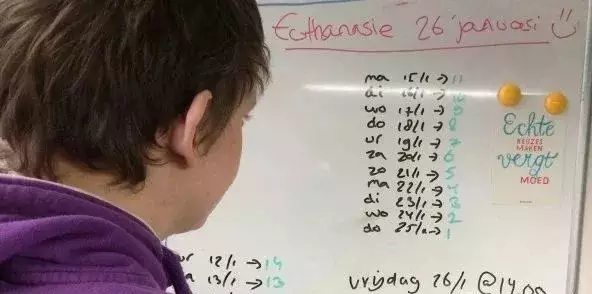 Euthanasie 26 januari
ma 15/1 → 11
di 16/1 → 10
wo 17/1 → 9
do 18/1 → 8
vr 19/1 → 7
za 20/1 → 6
zo 21/1 → 5
ma 22/1 → 4
di 23/1 → 3
wo 24/1 → 2
do 25/1 → 1
Echte
KEUZES
MAKEN
vergt
MOED
vr 12/1 → 14
13/1 → 13
vrijdag 26/1 @ 14